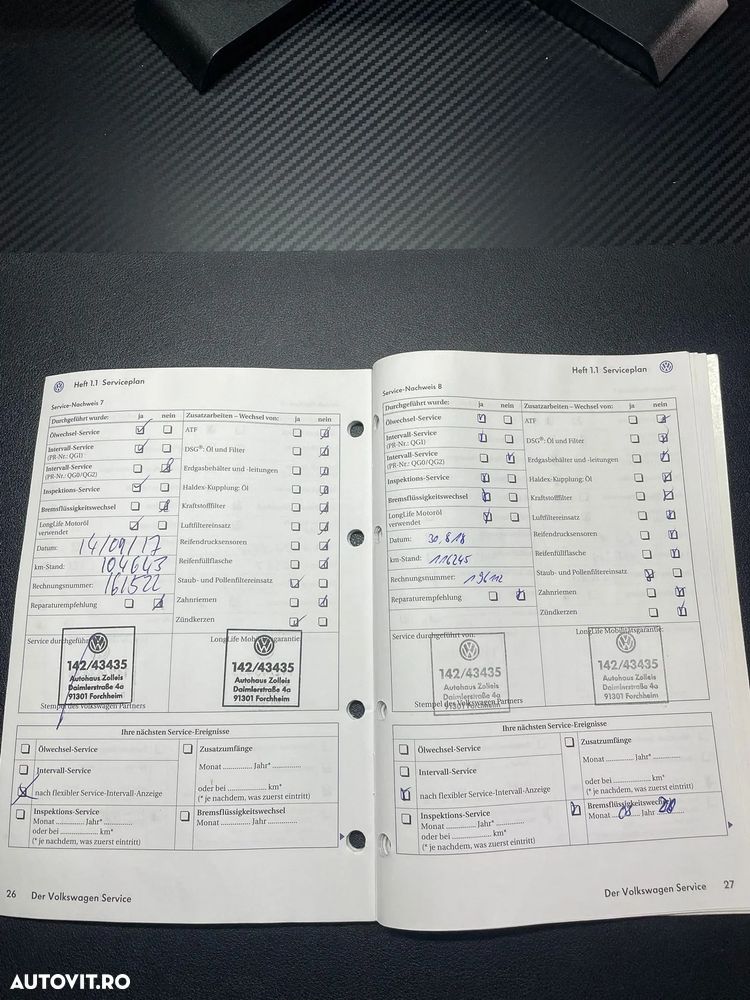 Heft 1.1 Serviceplan
Service-Nachweis 7
Durchgeführt wurde: ja nein
Ölwechsel-Service
Intervall-Service
(PR-Nr.: QG1)
Intervall-Service
(PR-Nr.: QG0/QG2)
Inspektions-Service
Bremsflüssigkeitswechsel
LongLife Motoröl
verwendet
Datum: 14/09/17
km-Stand: 104643
Rechnungsnummer: 161522
Reparaturempfehlung
Zusatzarbeiten – Wechsel von: ja nein
ATF
DSG®: Öl und Filter
Erdgasbehälter und -leitungen
Haldex-Kupplung: Öl
Kraftstofffilter
Luftfiltereinsatz
Reifendrucksensoren
Reifenfüllflasche
Staub- und Pollenfiltereinsatz
Zahnriemen
Zündkerzen
Service durchgeführt
142/43435
Autohaus Zolleis
Daimlerstraße 4a
91301 Forchheim
Stempel des Volkswagen Partners
LongLife Mobilitätsgarantie:
142/43435
Autohaus Zolleis
Daimlerstraße 4a
91301 Forchheim
Ihre nächsten Service-Ereignisse
Ölwechsel-Service
Intervall-Service
nach flexibler Service-Intervall-Anzeige
Inspektions-Service
Monat ............ Jahr* ............
oder bei ............ km*
(* je nachdem, was zuerst eintritt)
Zusatzumfänge
Monat ............ Jahr* ............
oder bei ............ km*
(* je nachdem, was zuerst eintritt)
Bremsflüssigkeitswechsel
Monat ............ Jahr ............
26 Der Volkswagen Service
Heft 1.1 Serviceplan
Service-Nachweis 8
Durchgeführt wurde: ja nein
Ölwechsel-Service
Intervall-Service
(PR-Nr.: QG1)
Intervall-Service
(PR-Nr.: QG0/QG2)
Inspektions-Service
Bremsflüssigkeitswechsel
LongLife Motoröl
verwendet
Datum: 30.8.18
km-Stand: 116245
Rechnungsnummer: 19612
Reparaturempfehlung
Zusatzarbeiten – Wechsel von: ja nein
ATF
DSG®: Öl und Filter
Erdgasbehälter und -leitungen
Haldex-Kupplung: Öl
Kraftstofffilter
Luftfiltereinsatz
Reifendrucksensoren
Reifenfüllflasche
Staub- und Pollenfiltereinsatz
Zahnriemen
Zündkerzen
Service durchgeführt von:
142/43435
Autohaus Zolleis
Daimlerstraße 4a
91301 Forchheim
Stempel des Volkswagen Partners
LongLife Mobilitätsgarantie:
142/43435
Autohaus Zolleis
Daimlerstraße 4a
91301 Forchheim
Ihre nächsten Service-Ereignisse
Ölwechsel-Service
Intervall-Service
nach flexibler Service-Intervall-Anzeige
Inspektions-Service
Monat ............ Jahr* ............
oder bei ............ km*
(* je nachdem, was zuerst eintritt)
Zusatzumfänge
Monat ............ Jahr* ............
oder bei ............ km*
(* je nachdem, was zuerst eintritt)
Bremsflüssigkeitswechsel
Monat ............ Jahr ............
Der Volkswagen Service 27
AUTOVIT.RO